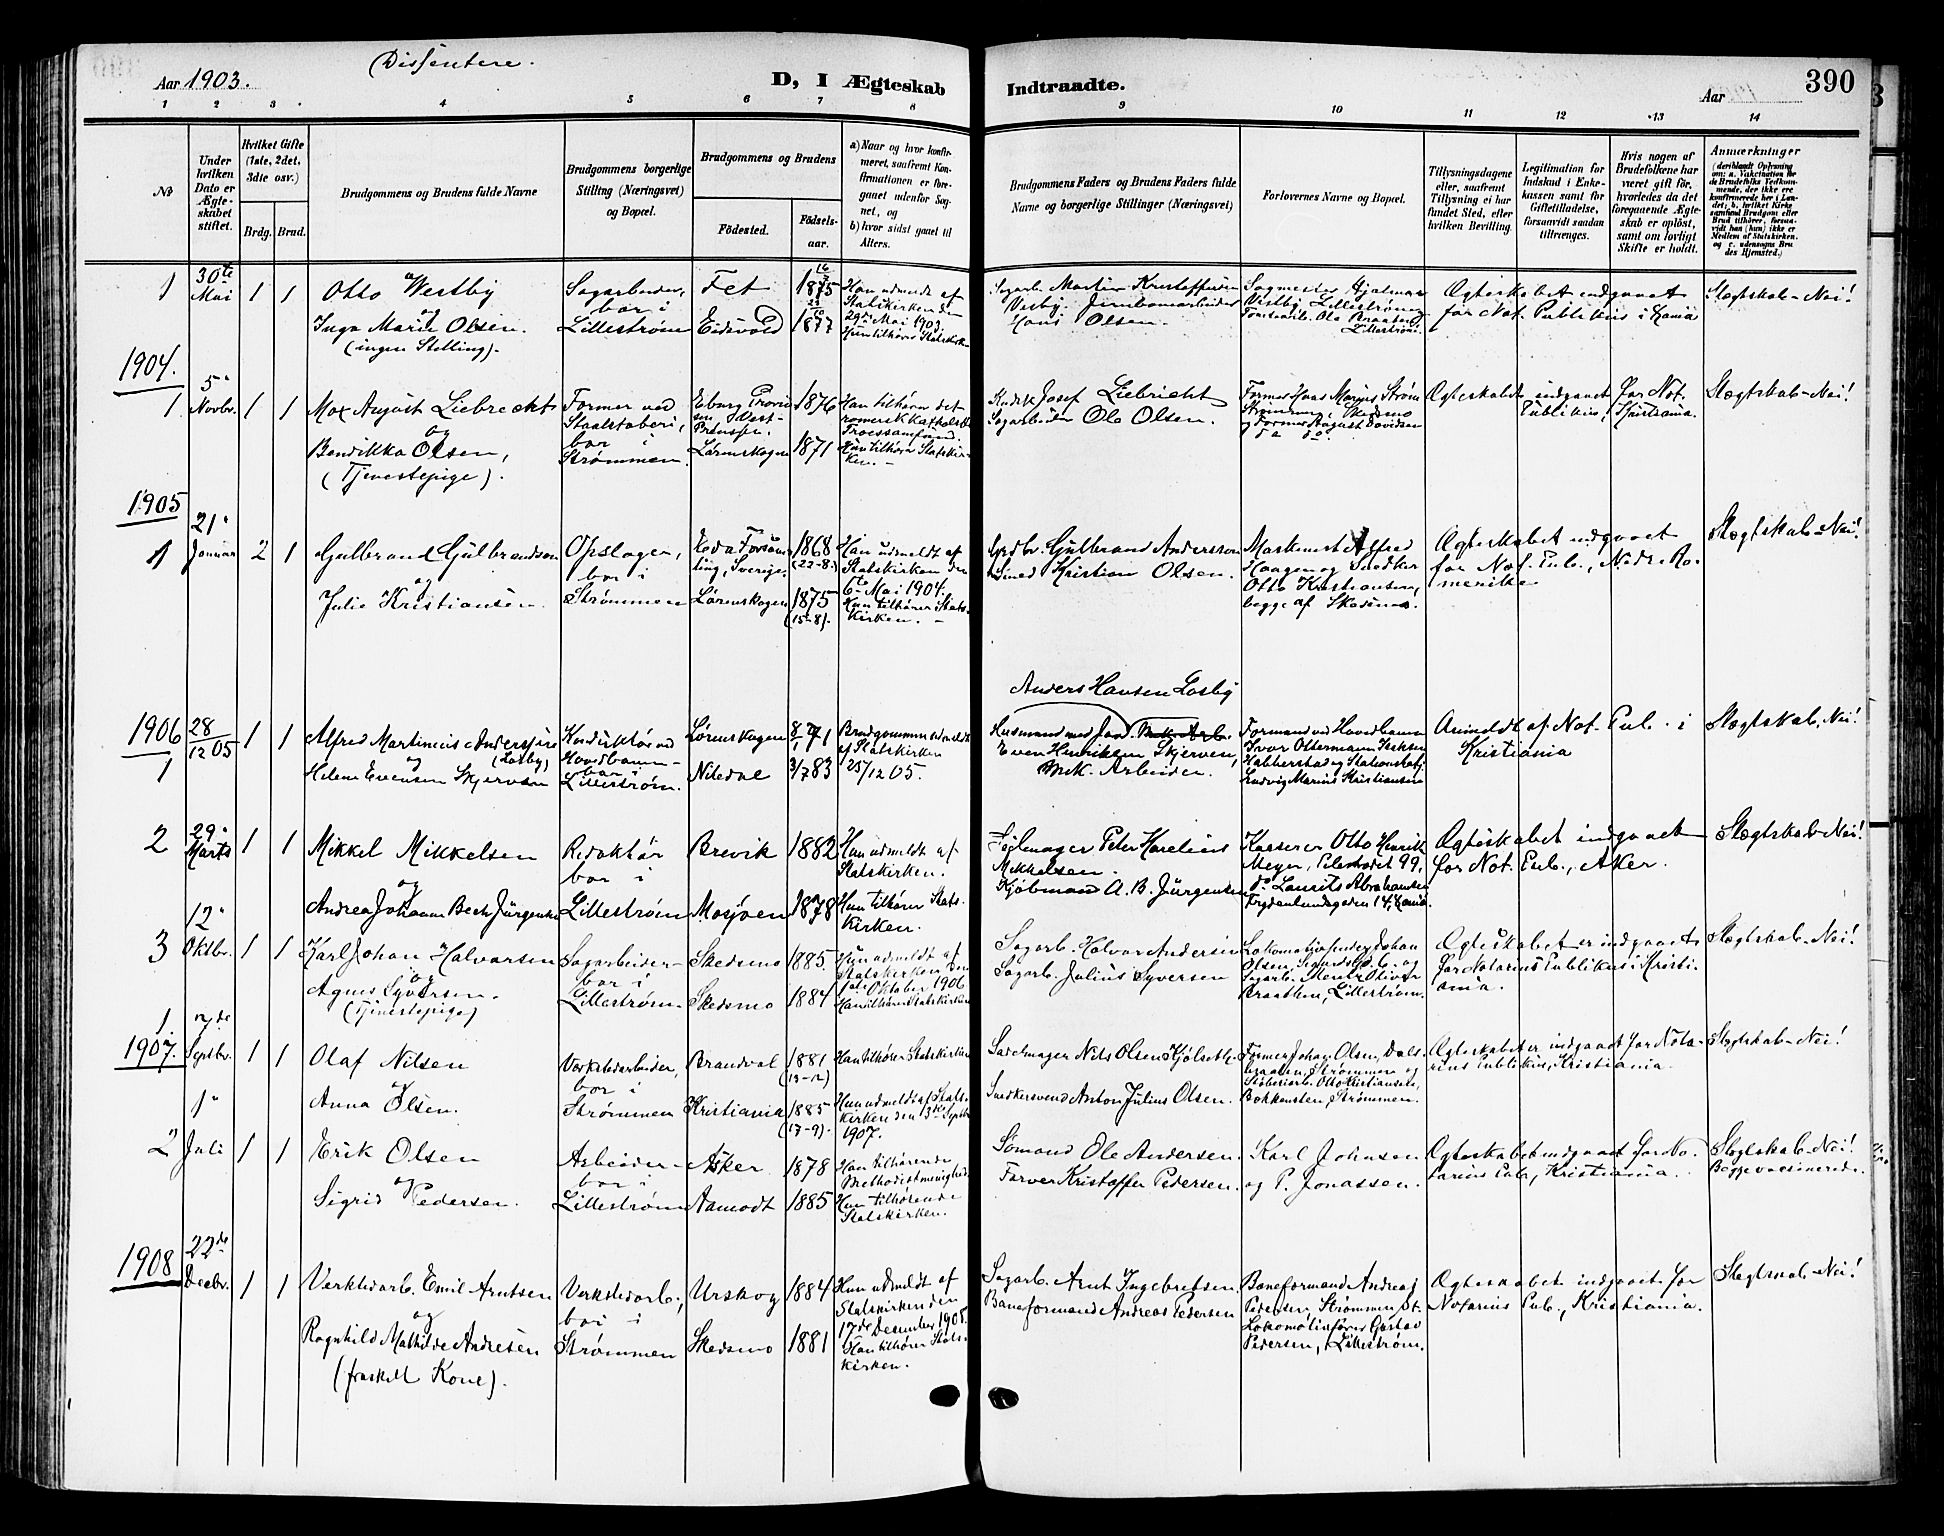 Dissentere.
Aar 1903.
D, I Ægteskab
Indtraadte.
Aar
390
1 2 3 4 5 6 7 8 9 10 11 12 13 14
No
Under hvilken Dato er Ægteskabet stiftet.
Hvilket Gifte (1ste, 2det, 3die osv.)
Brdg. Brud.
Brudgommens og Brudens fulde Navne
Brudgommens borgerlige Stilling (Næringsvei) og Bopæl.
Brudgommens og Brudens
Fødested.
Fødselsaar.
a) Naar og hvor konfirmeret, saafremt Konfirmationen er foregaaet udenfor Sognet, og
b) hvor sidst gaaet til Alters.
Brudgommens Faders og Brudens Faders fulde Navne og borgerlige Stillinger (Næringsvei)
Forlovernes Navne og Bopæl.
Tillysningsdagene eller, saafremt Tillysning ei har fundet Sted, efter hvilken Bevilling.
Legitimation for Indskud i Enkekassen samt for Giftetilladelse, forsaavidt saadan tiltrænges.
Hvis nogen af Brudefolkene har været gift før, hvorledes da det foregaaende Ægteskab er opløst, samt om lovligt Skifte er holdt.
Anmærkninger
(deriblandt Oplysning om: a. Vakcination for de Brudefolks Vedkommende, der ikke ere konfirmerede her i Landet; b. hvilket Kirkesamfund Brudgom eller Brud tilhører, forsaavidt han (hun) ikke er Medlem af Statskirken, og c. udensogns Brudes Hjemsted.)
1 30te Mai 1 1
Otto Westby
og
Inga Marie Olsen.
(ingen Stilling).
Sagarbeider,
bor i
Lillestrøm
Fet
Eidsvold
16/7 1875
1877
Han udmeldt af
Statskirken den
29de Mai 1903.
Hun tilhører Statskirk-
Sagarb. Martin Kristoffersen
Visby. Jernbanearbeider
Hans Olsen.
Sagmester Hjalmar
Vestby Lillestrøm og
Ole Braatend
Lillestrøm.
Ægteskabet indgaaet
for Not. Publikus i Kania
Slægtskab - Nei!
1904.
1 5' Novbr. 1 1
Max August Liebrecht
og
Bendikka Olsen,
(Tjenestepige).
Former ved
Staalstøberi,
bor i
Strømmen.
Elbing Provin
sen West-
Preussen.
Lørenskogen
1876
1871
Han tilhører det
romersk katholske
Troessamfund.
Hun tilhører Statskir-
ken. -
Kudsk Josef Liebricht
Sagarbeider Ole Olsen.
Former Hans Marius Strøm
Strømmen, Skedsmo
og Former August Davidsen
do do.
Ægteskabet indgaaet for Not.
Publikus, Kristiania.
Slægtskab - Nei!
1905
1 21' Januar 2 1
Gulbrand Gulbrandsen
og
Julie Kristiansen.
Opslager,
bor i
Strømmen
Eda Forsam-
ling, Sverige.
Lørenskogen
1868
(22-8.)
1875
(15-8).
Han udmeldt af
Statskirken den
6te Mai 1904.
Hun tilhører Stats-
kirken. -
Grdbr. Gulbrand Andersson
Smed Kristian Olsen.
Maskinmst Alfred
Haagen og Snedker
Otto Kristiansen,
begge af Skedsmo.
Ægteskabet indgaaet
for Not. Pub., Nedre Ro-
merike
Slægtskab - Nei!
Anders Hansen Losby
1906
1 28/12 05 1 1
Alfred Martinius Andersen
og (Losby)
Helene Evensen Skjerven
Konduktør ved
Hovedbanen
bor i
Lillestrøm.
Lørenskogen
Nitedal
8/1 71
3/7 83
Brudgommen udmeldt
af Statskirken
23/12 05.
Husmand med Jord
Even Henriksen Skjerven,
Mek. Arbeider.
Formand ved Hovedbanen
Ivar Ottermann Isaksen
Habberstad og Stationsbetj.
Ludvig Marius Kristiansen
Anmeldt af Not. Pub. i
Kristiania
Slægtskab. Nei!
2 29' Marts 1 1
Mikkel Mikkelsen
og
Andrea Johanne Bech Jürgensen
Redaktør
bor i
Lillestrøm
Brevik
Mosjøen
1882
1878
Han udmeldt af
Statskirken.
Hun tilhører Stats-
kirken.
Seilmager Peter Karelius
Mikkelsen.
Kjøbmand A. B. Jürgensen
Kasserer Otto Henrik
Meyer, Pilestrædet 99,
do Laurits Abrahamsen
Frydenlundsgaden 14, Kania.
Ægteskabet indgaaet
for Not. Pub., Aker.
Slægtskab - Nei!
3 12' Oktbr. 1 1
Karl Johan Halvorsen
og
Agnes Syversen.
(Tjenestepige)
Sagarbeider -
bor i
Lillestrøm -
Skedsmo
Skedsmo
1885.
1884
Hun udmeldt af
Statskirken den
Oktober 1906
Han tilhører Statskirken
Sagarb. Halvor Andersen
Sagarb. Julius Syversen
Lokomotivfører Johan
Olsen, og
Sagarb. Oliver
Braathen, Lillestrøm.
Ægteskabet er indgaaet
for Notarius Publikus i Kristi-
ania.
Slægtskab - Nei!
1907.
1. 7de Septbr. 1 1
Olaf Nilsen
og
Anna Olsen.
Verkstedarbeider,
bor i
Strømmen
Brandval
Kristiania
1881
(19-12)
1885
(17-9).
Han tilhører Statskirken
Hun udmeldt af Stats-
kirken den 3die Septbr
1907.
Sadelmager Nils Olsen
Snedkersvend Anton Julius Olsen.
Former Johan Olsen, Dals-
Strømmen og
Støberiarb. Otto Kristiansen,
Bokkensten, Strømmen.
Ægteskabet er indgaaet for Nota-
rius Publikus, Kristiania.
Slægtskab - Nei!
2 1' Juli 1 1
Erik Olsen
og
Sigrid Pedersen.
Arbeider -
bor i
Lillestrøm
Asker
Aamodt
1878
1885
Han tilhørende
Methodistmenighed.
Hun tilhørende
Statskirken.
Sømand Ole Andersen.
Farver Kristoffer Pedersen.
Karl Johnsen
og P. Jonassen.
Ægteskabet indgaaet for No-
tarius Pub., Kristiania.
Slægtskab - Nei!
Begge vaccinerede.
1908
22de Decbr. 1 1
Verkstedarb. Emil Arntsen
og
Ragnhild Mathilde Andresen
(fraskilt Kone).
Verkstedarb.,
bor i
Strømmen
Urskog
Skedsmo
1884
1881
Hun udmeldt af
Statskirken den
17de December 1908.
Han tilhører Stats-
kirken.
Sagarb. Arnt Ingebretsen.
Baneformand Andreas Pedersen
Baneformand Andreas
Pedersen, Strømmen St.
Lokomotivfører Gustav
Pedersen, Lillestrøm.
Ægteskabet indgaaet for
Notarius Pub., Kristiania.
Slægtskab - Nei!